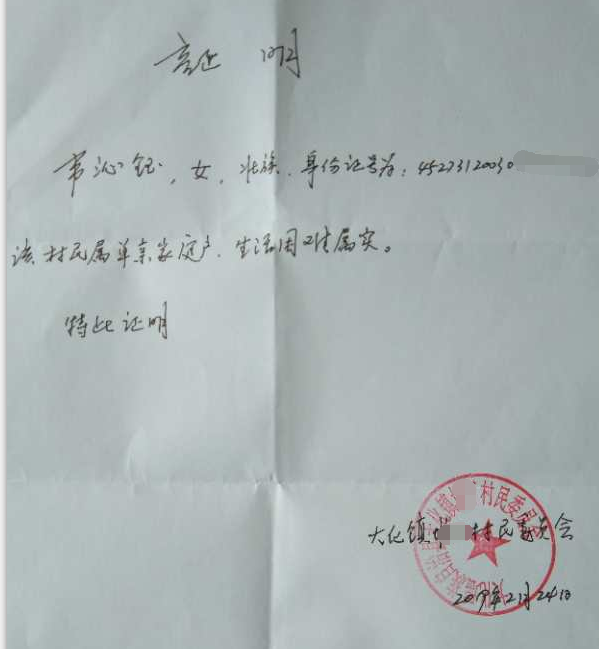 证 明
韦沁钰，女，壮族，身份证号为：45273120030
该村民属单亲家庭户，生活困难属实。
特此证明
村民委员会
大化镇 村民委员会
2019年2月24日